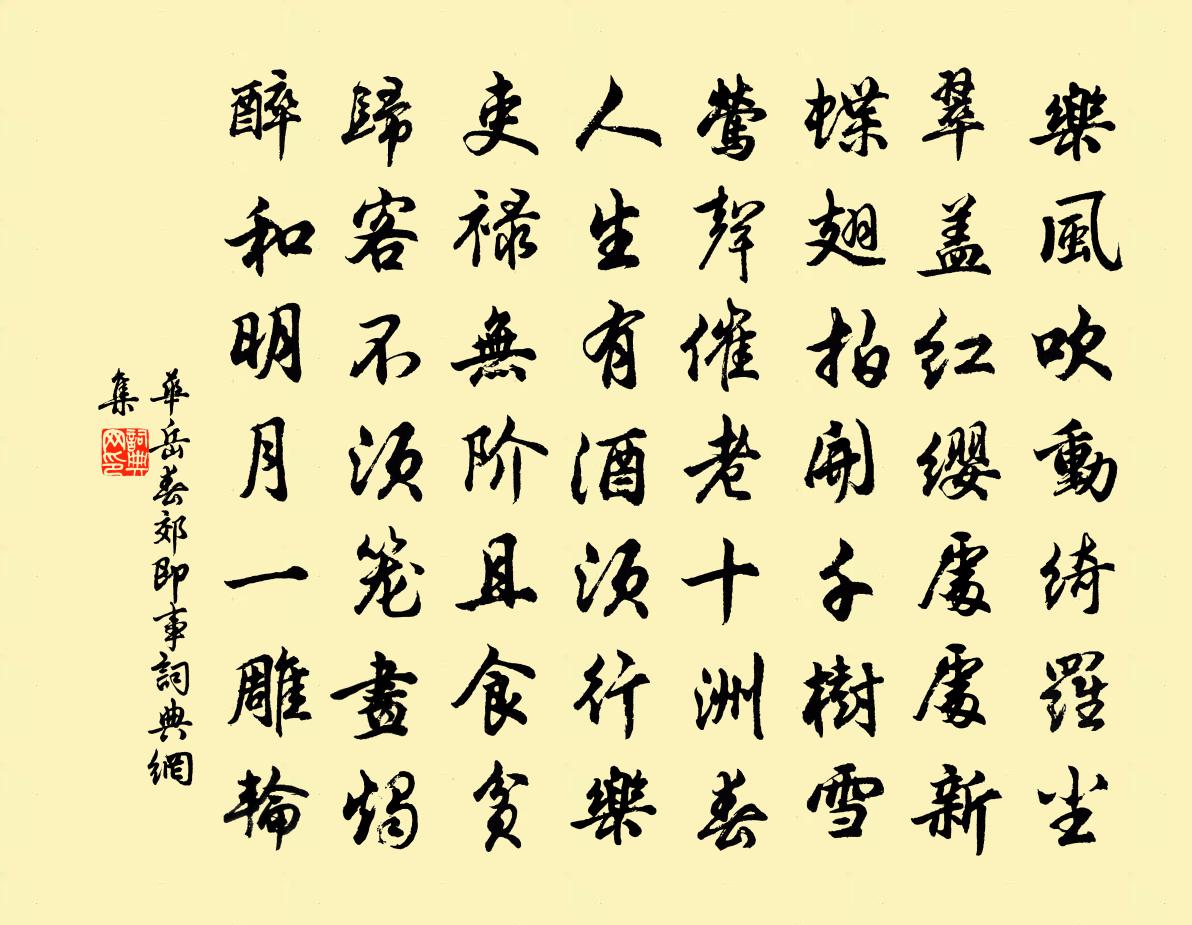 樂風吹動綺羅尘
翠盖红缨處處新
蝶翅拍開千樹雪
鶯聲催老十洲春
人生有酒須行樂
吏禄無阶且食貧
歸客不須笼畫燭
醉和明月一雕輪
華岳春郊即事詞典網
集
詞典网印